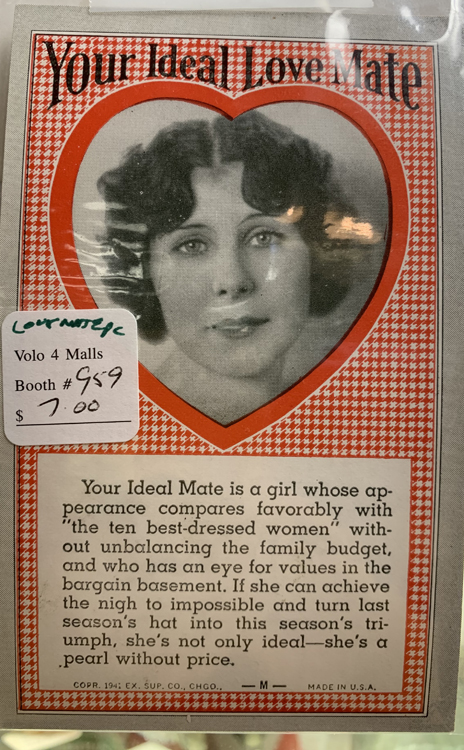 Your Ideal Love Mate
Volo 4 Malls
Booth # 959
$ 7.00
Your Ideal Mate is a girl whose ap-
pearance compares favorably with
"the ten best-dressed women" with-
out unbalancing the family budget,
and who has an eye for values in the
bargain basement. If she can achieve
the nigh to impossible and turn last
season's hat into this season's tri-
umph, she's not only ideal—she's a
pearl without price.
COPR. EX. SUP. CO., CHGO., — M — MADE IN U.S.A.